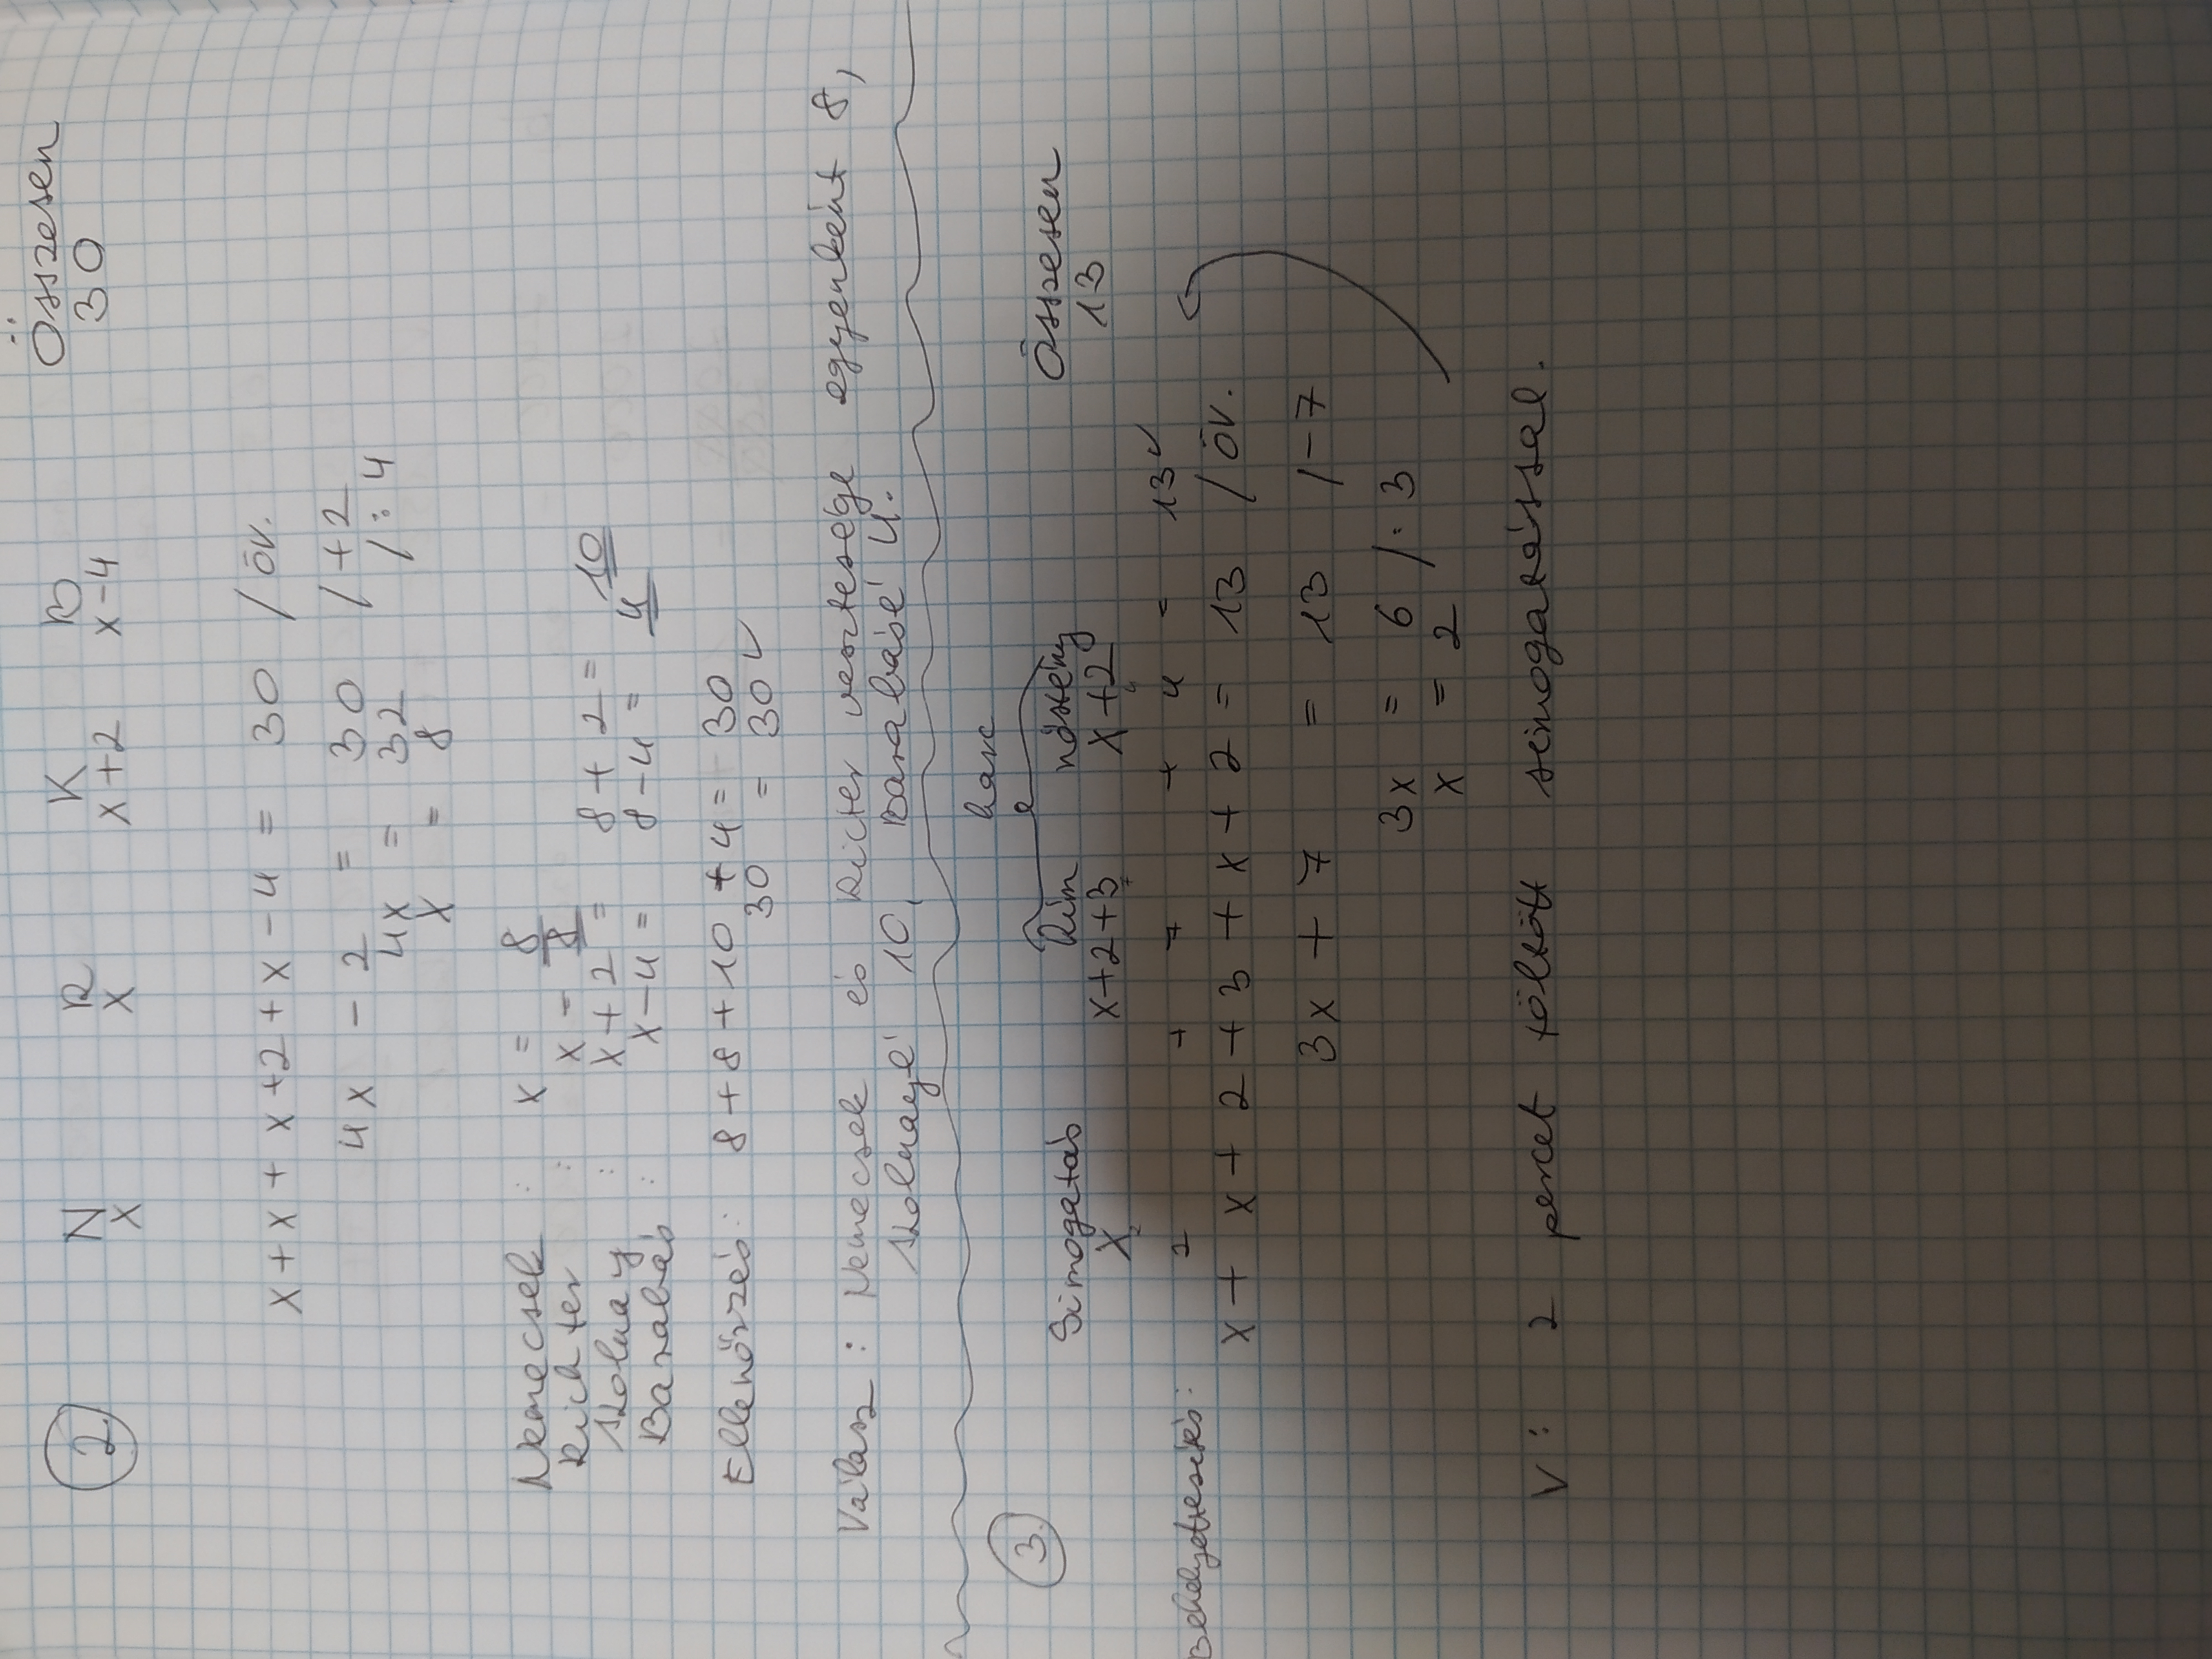 2 N R K B Összesen
x x x+2 x-4 30
x + x + x + 2 + x - 4 = 30 / öv.
4x - 2 = 30 / + 2
4x = 32 / : 4
x = 8
Nemecsek : x = 8
Richter : x = 8
Kolnay : x + 2 = 8 + 2 = 10
Barabás : x - 4 = 8 - 4 = 4
Ellenőrzés: 8 + 8 + 10 + 4 = 30
30 = 30 ✓
Válasz : Nemecsek és Richter vesztesége egyenként 8,
Kolnayé 10, Barabásé 4.
harc
3. Simogatás hím nőstény Összesen
x x+2+3 x+2 13
Behelyettesítés: 2 + 7 + 4 = 13 ✓
x + x + 2 + 3 + x + 2 = 13 / öv.
3x + 7 = 13 / - 7
3x = 6 / : 3
x = 2
V: 2 percet töltött simogatással.